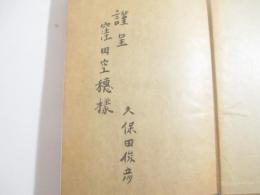 謹呈
窪田空穂様
久保田俊彦